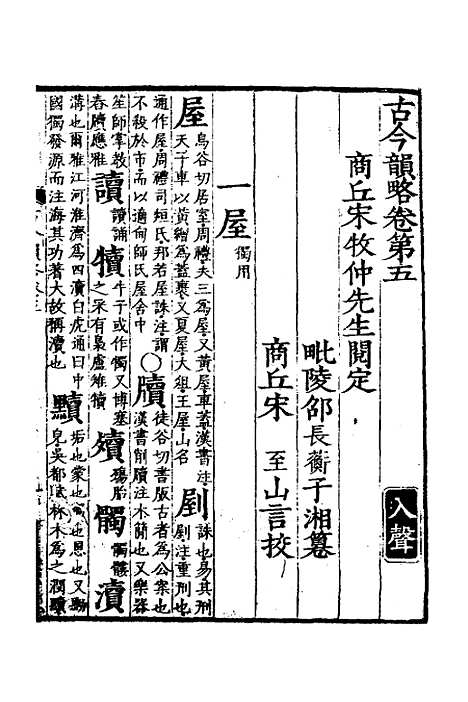 古今韻略卷第五
入聲
商丘宋牧仲先生閱定
毗陵邵長蘅子湘纂
商丘宋　至山言挍
一屋獨用
屋烏谷切居室周禮夫三爲屋又黃屋車蓋漢書注
天子車以黃繒爲蓋裹又夏屋大俎王屋山名
剭誅也易其刑
剭注重刑也
通作屋周禮司烜氏邦若屋誅注謂
不殺於市而以適甸師氏屋舍中
○牘徒谷切書版古者爲公案也
漢書削牘注木簡也又樂器
笙師掌敎
舂牘應雅
讀讀誦
犢牛子或作㹍又博塞
之采有梟盧雉犢
殰殤胎
髑髑髏
瀆
溝也爾雅江河淮濟爲四瀆白虎通曰中
國獨發源而注海其功著大故稱瀆也
黷垢也蒙也
皃吳都賦林木爲之潤黷